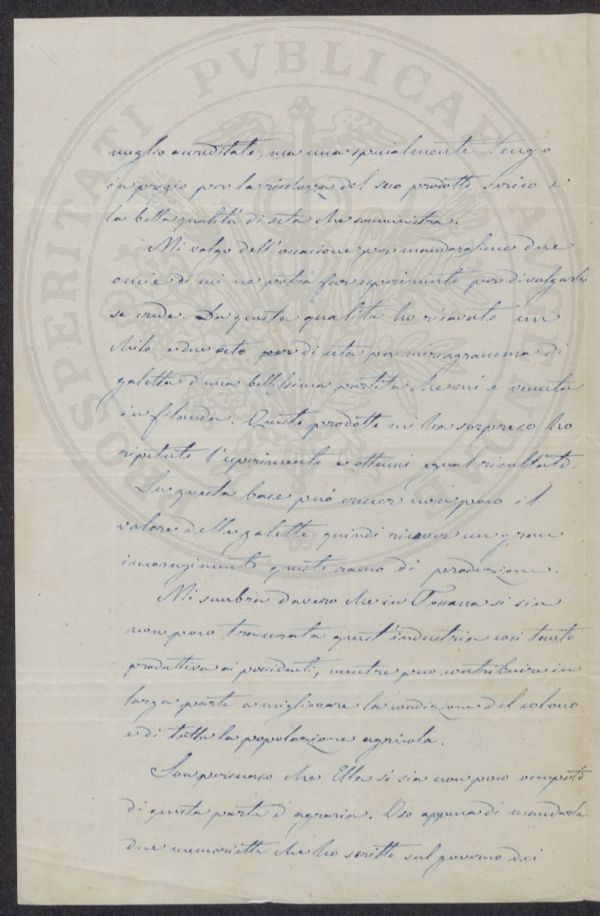 PROSPERITATI PVBLICAE
meglio accreditate, ma una specialmente tengo
in pregio per la ricchezza del suo prodotto serico e
la bella qualità di seta che somministra.
Mi valgo dell'occasione per mandargliene due
oncie di cui ne potrà fare esperimento per divulgarla
se crede. Da questa qualità ho ricavato un
kilo e due seta per di seta per miriagramma di
galetta d'una bellissima partita che mi è venuta
in filanda. Questo prodotto mi ha sorpreso ho
ripetuto l'esperimento e ottenni egual risultato.
Su questa base può crescer non poco il
valore della galetta quindi ricever un gran
incoraggimento questo ramo di produzione.
Mi sembra davvero che in Toscana si sia
non poco trascurata quest'industria così tanto
produttiva ai possidenti, mentre può contribuire in
larga parte a migliorare la condizione del colono
e di tutta la popolazione agricola.
Son persuaso che Ella si sia non poco occupato
di questa parte d'agraria. Oso appena di mandarle
due memoriette che ho scritto sul governo dei